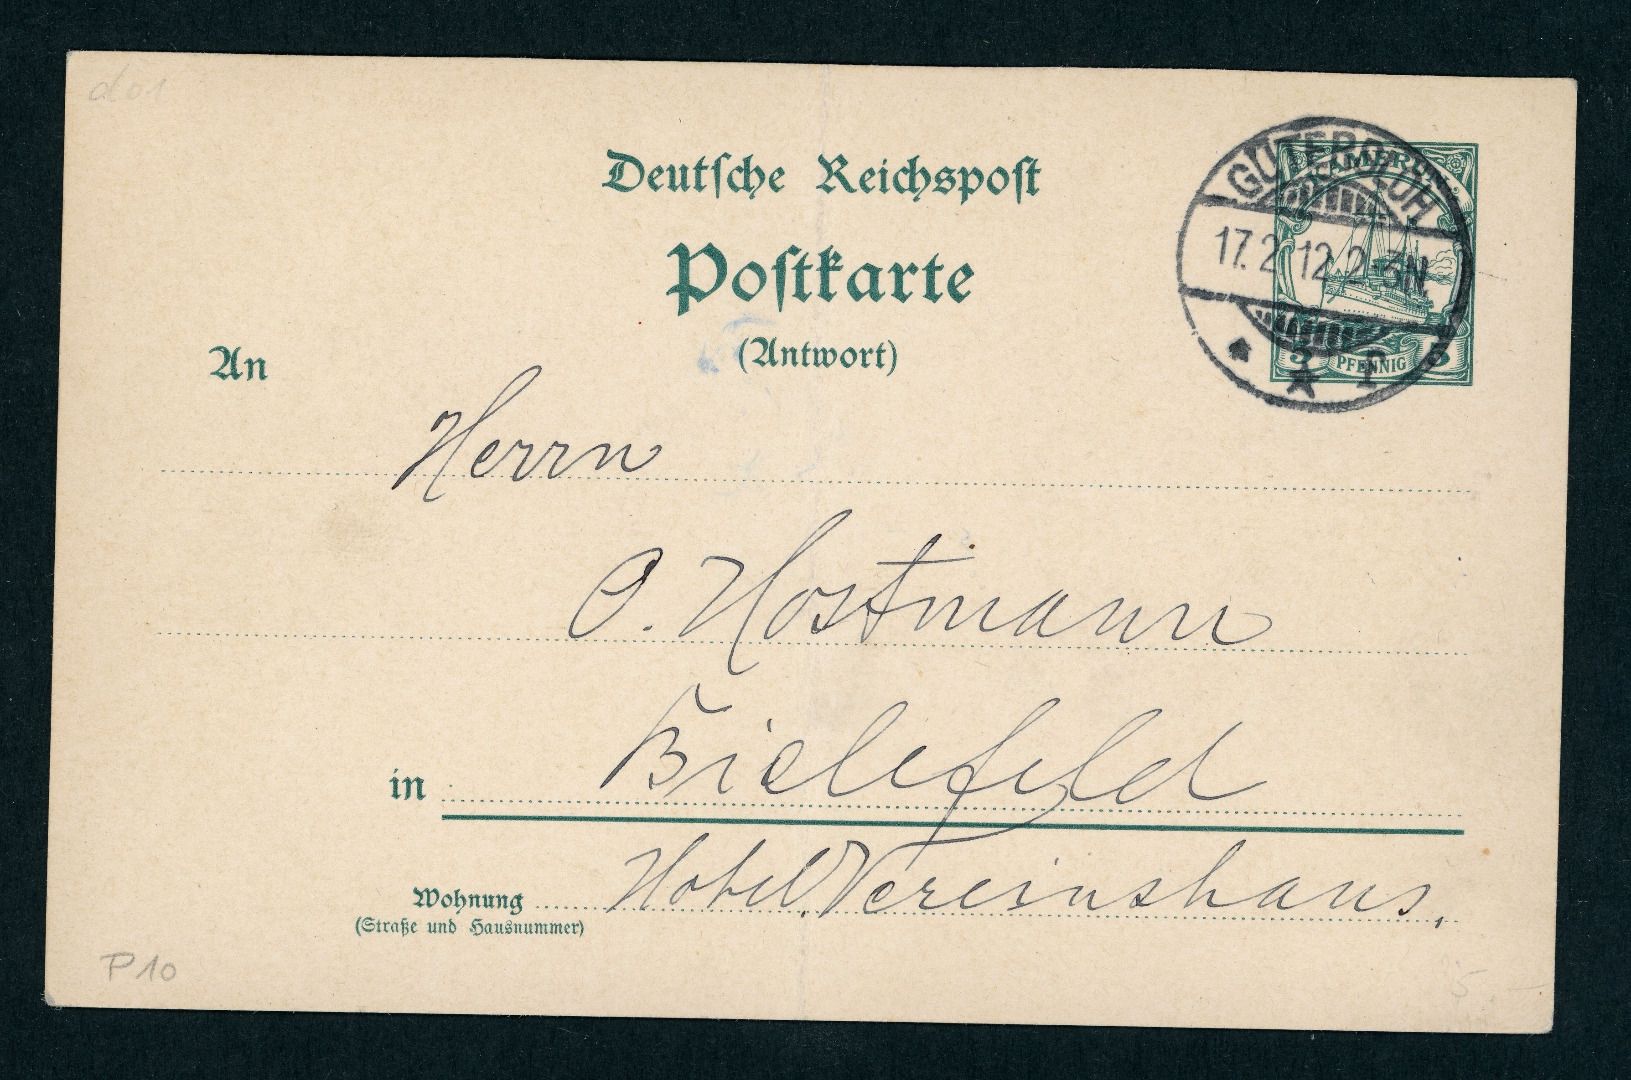 do1
Deutsche Reichspost
Postkarte
(Antwort)
GÜTERSLOH
17.2.12.2-3N.
KAMERUN
5 PFENNIG 5
An
Herrn
O. Hostmann
in Bielefeld
Wohnung Hotel Vereinshaus,
(Straße und Hausnummer)
P10
5.–